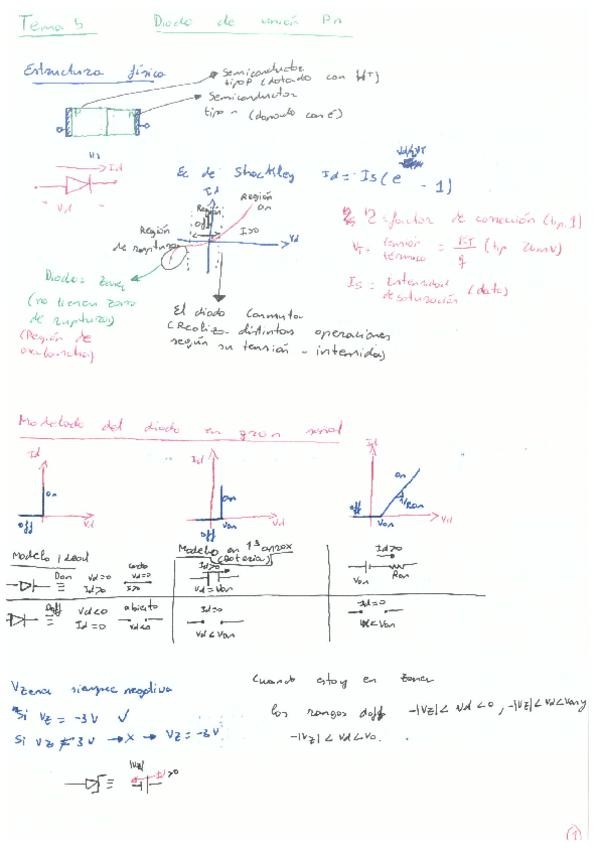 Tema 5 Diodo de unión Pn
Estructura física
Semiconductor
tipo P (dotado con H+)
Semiconductor
tipo n (donado con e-)
Id
Vd
Ec de Shockley Id = Is(e^Vd/ηVT - 1)
Id
Región
on
Región
off
I>0
Vd
Región
de ruptura
η = factor de corrección (tip. 1)
VT = tensión térmico = KT/q (tip 26mV)
Is = Intensidad de saturación (dato)
Diodos Zener
(no tienen zona
de ruptura)
(Región de
avalancha)
El diodo conmuta
(Realiza distintas operaciones
según su tensión - intensidad)
Modelado del diodo en gran señal
Id
on
off
Vd
Id
on
off
Von
Vd
Id
on
1/Ron
off
Von
Vd
Modelo Ideal
Modelo en 1ª aprox
(Bateria)
Don Vd=0 Id>0
corto Vd=0 I>0
Id>0
Vd=Von
Id>0
Von Ron
Doff Vd<0 Id=0
abierto Vd<0
Id=0
Vd<Von
Id=0
Vd<Von
Vzener siempre negativa
Si Vz = -3V ✓
Si Vz = 3V → X → Vz = -3V
|Vz|
I>0
Cuando estoy en zener
los rangos doff -|Vz|< Vd <0, -|Vz|<Vd<Von y
-|Vz| < Vd < Vo.
1